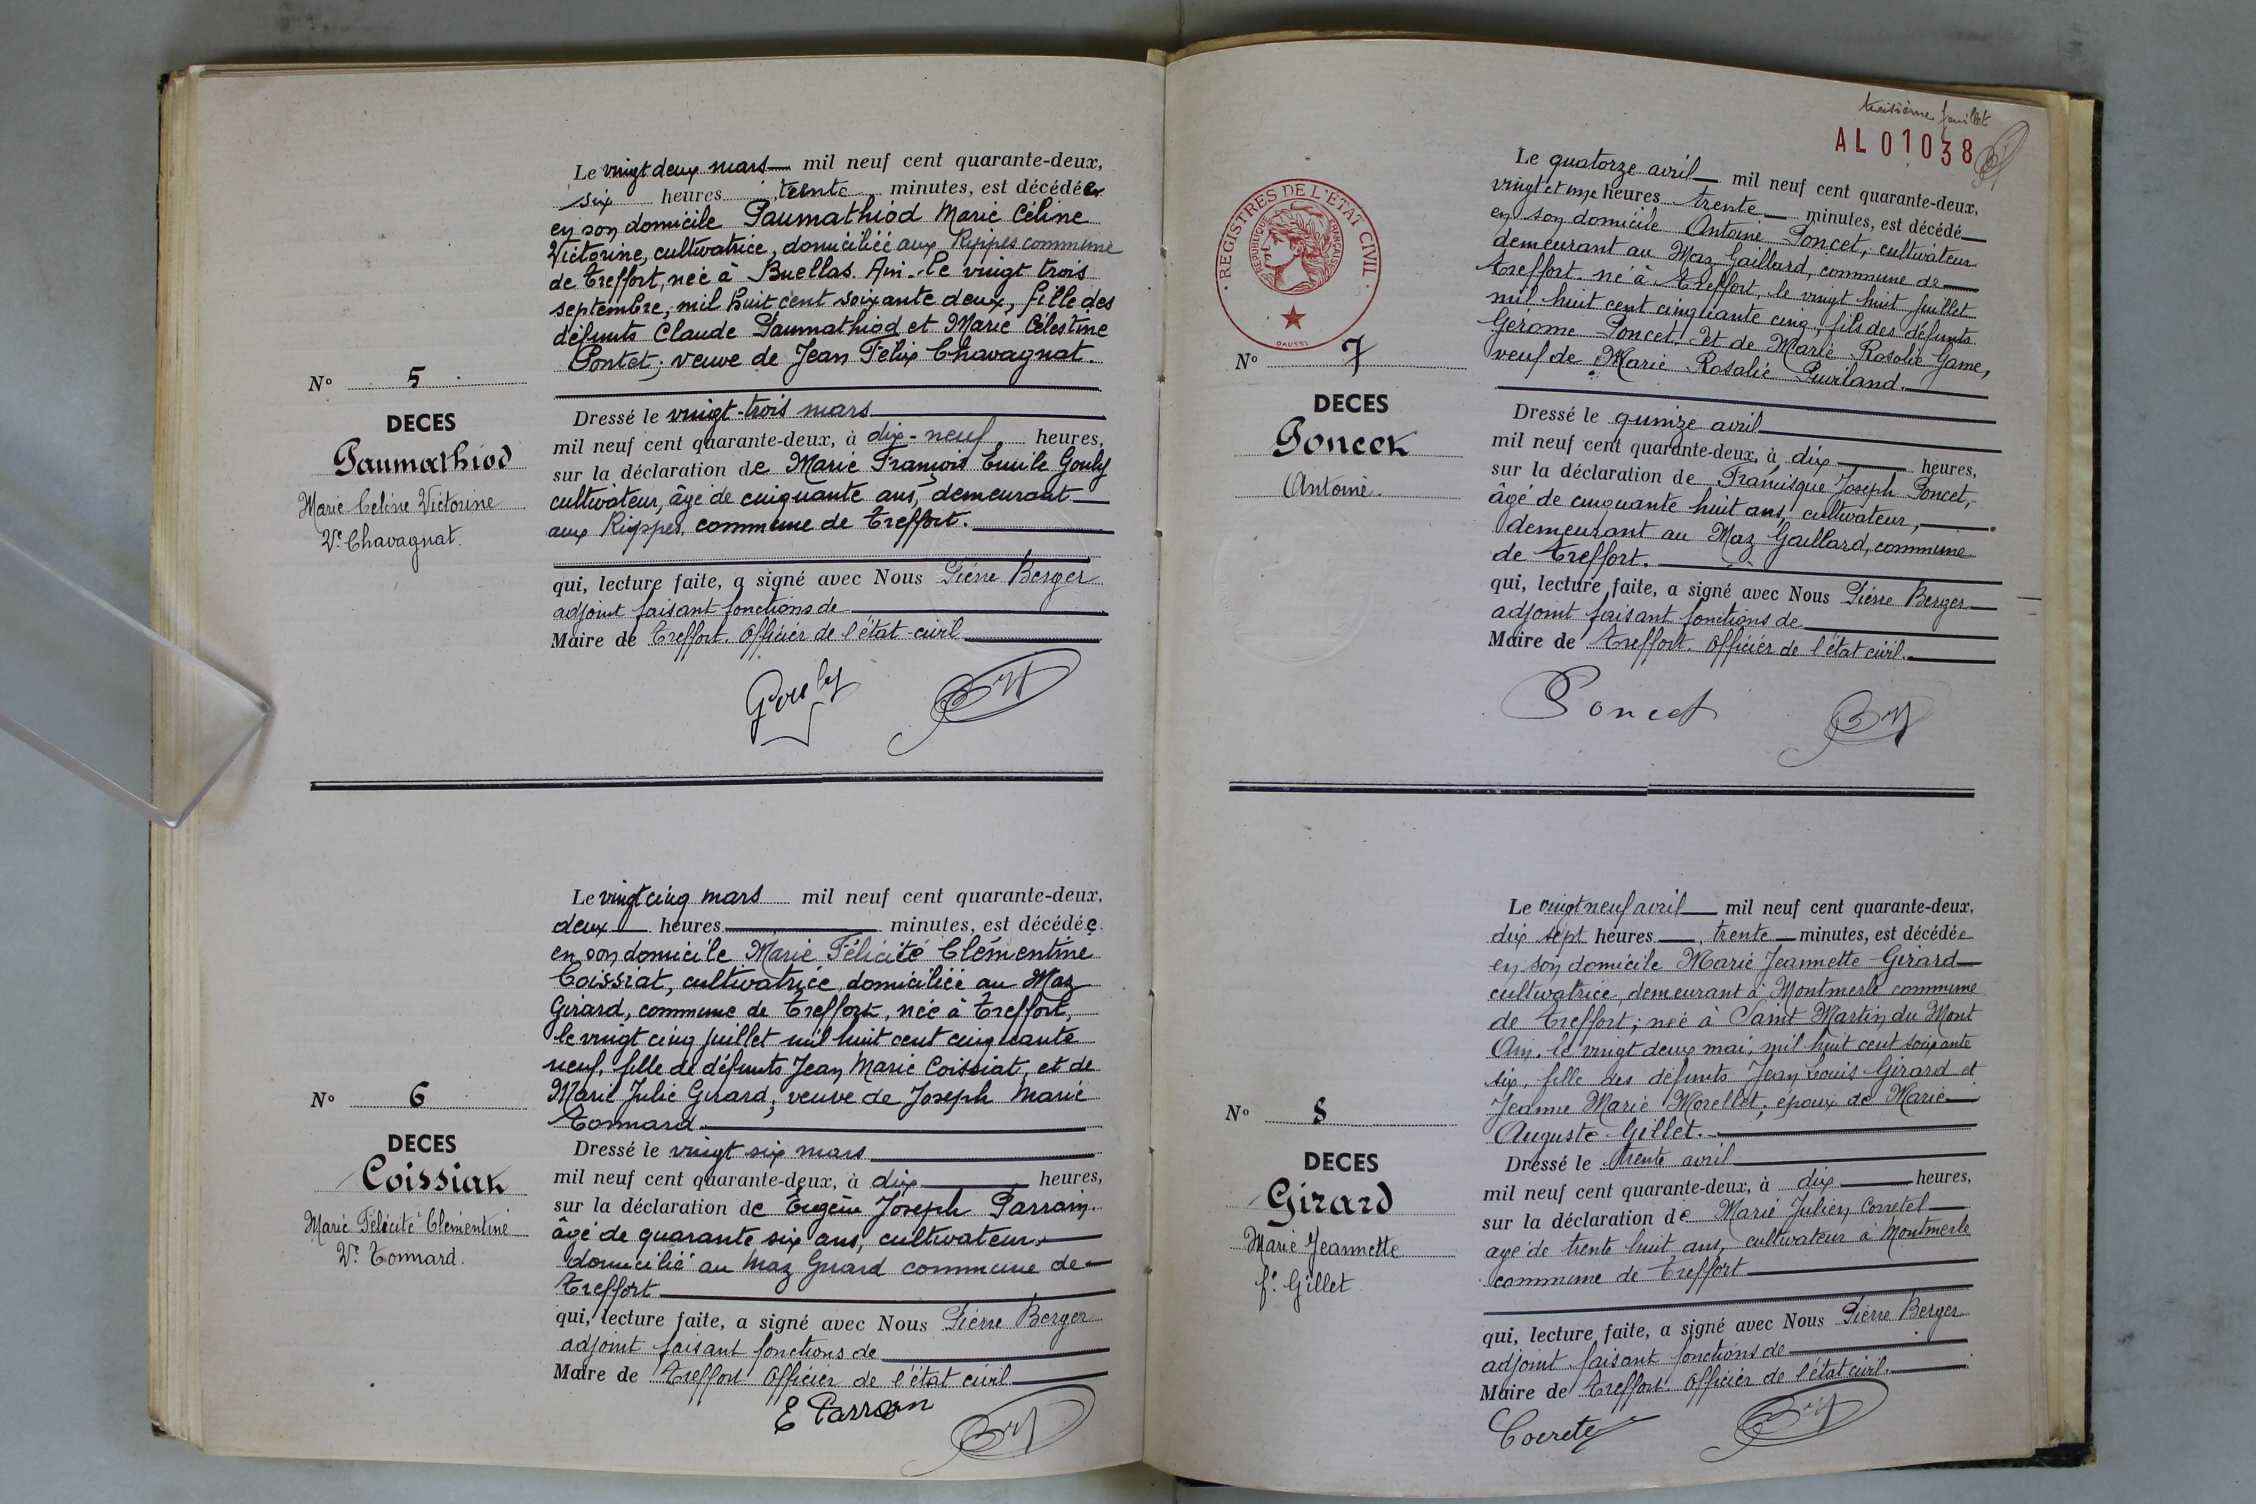 Le vingt deux mars mil neuf cent quarante-deux,
six heures trente minutes, est décédée
en son domicile Paumathiod Marie Céline
Victorine, cultivatrice, domiciliée aux Rippes commune
de Treffort, née à Buellas Ain. le vingt trois
septembre, mil huit cent soixante deux, fille des
défunts Claude Paumathiod et Marie Célestine
Pontet; veuve de Jean Félix Chavagnat.
N° 5
DECES
Paumathiod
Marie Céline Victorine
Vᵉ Chavagnat.
Dressé le vingt-trois mars
mil neuf cent quarante-deux, à dix-neuf heures,
sur la déclaration de Marie François Emile Gouly
cultivateur, âgé de cinquante ans, demeurant
aux Rippes, commune de Treffort.
qui, lecture faite, a signé avec Nous Pierre Berger
adjoint faisant fonctions de
Maire de Treffort. Officier de l'état-civil
Gouly
Le vingt cinq mars mil neuf cent quarante-deux,
deux heures minutes, est décédée
en son domicile Marie Félicité Clémentine
Coissiat, cultivatrice, domiciliée au Maz
Girard, commune de Treffort, née à Treffort,
le vingt cinq juillet mil huit cent cinquante
neuf, fille de défunts Jean Marie Coissiat, et de
Marie Julie Girard; veuve de Joseph Marie
Tonnard.
N° 6
DECES
Coissiat
Marie Félicité Clémentine
Vᵉ Tonnard.
Dressé le vingt six mars
mil neuf cent quarante-deux, à dix heures,
sur la déclaration de Eugène Joseph Parrain.
âgé de quarante six ans, cultivateur
domicilié au Maz Girard commune de
Treffort
qui, lecture faite, a signé avec Nous Pierre Berger
adjoint faisant fonctions de
Maire de Treffort Officier de l'état civil
E Parrain
treizième feuillet
AL01038
REGISTRES DE L'ETAT CIVIL
REPUBLIQUE FRANÇAISE
DAUSSI
Le quatorze avril mil neuf cent quarante-deux,
vingt et une heures trente minutes, est décédé
en son domicile Antoine Poncet, cultivateur
demeurant au Maz Gaillard, commune de
Treffort. né à Treffort, le vingt huit juillet
mil huit cent cinquante cinq, fils des défunts
Gérome Poncet. Et de Marie Rosalie Game,
veuf de Marie Rosalie Puviland.
N° 7
DECES
Poncet
Antoine.
Dressé le quinze avril
mil neuf cent quarante-deux, à dix heures,
sur la déclaration de Francisque Joseph Poncet,
âgé de cinquante huit ans, cultivateur,
demeurant au Maz Gaillard, commune
de Treffort.
qui, lecture faite, a signé avec Nous Pierre Berger
adjoint faisant fonctions de
Maire de Treffort. Officier de l'état civil.
Poncet
Le vingt neuf avril mil neuf cent quarante-deux,
dix sept heures trente minutes, est décédée
en son domicile Marie Jeannette Girard
cultivatrice, demeurant à Montmerle commune
de Treffort; née à Saint Martin du Mont
Ain. le vingt deux mai, mil huit cent soixante
six, fille des défunts Jean Louis Girard et
Jeanne Marie Morellet, époux de Marie
Auguste Gillet.
N° 8
DECES
Girard
Marie Jeannette
fᵉ Gillet
Dressé le trente avril
mil neuf cent quarante-deux, à dix heures,
sur la déclaration de Marie Julien Corretel
agé de trente huit ans, cultivateur à Montmerle
commune de Treffort
qui, lecture faite, a signé avec Nous Pierre Berger
adjoint faisant fonctions de
Maire de Treffort. Officier de l'état civil.